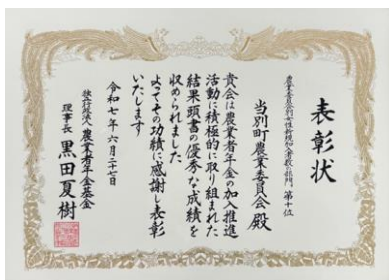 表彰状
農業委員会別女性新規加入者数の部門 第十位
当別町農業委員会 殿
貴会は農業者年金の加入推進
活動に積極的に取り組まれた
結果頭書の優秀な成績を
収められました
よってその功績に感謝し表彰
いたします
令和七年六月二十七日
独立行政法人 農業者年金基金
理事長 黒田夏樹